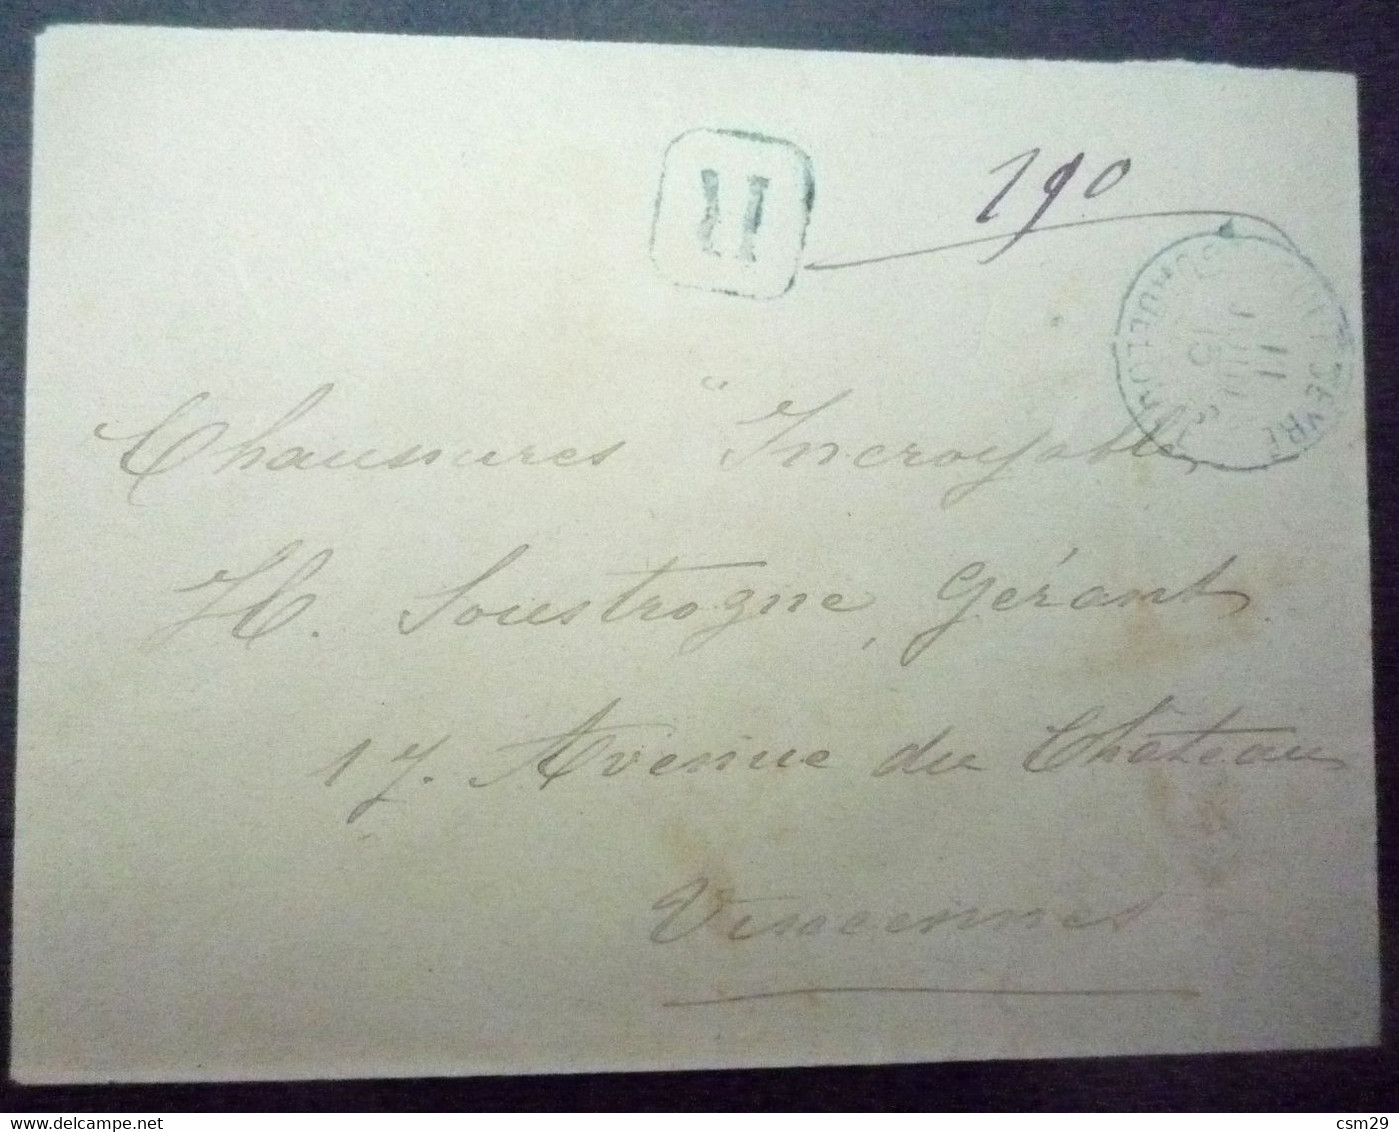 R
190
Chaussures "Incroyable
H. Soustrogne, Gérant
17. Avenue du Château
Vincennes
delcampe.net
csm29